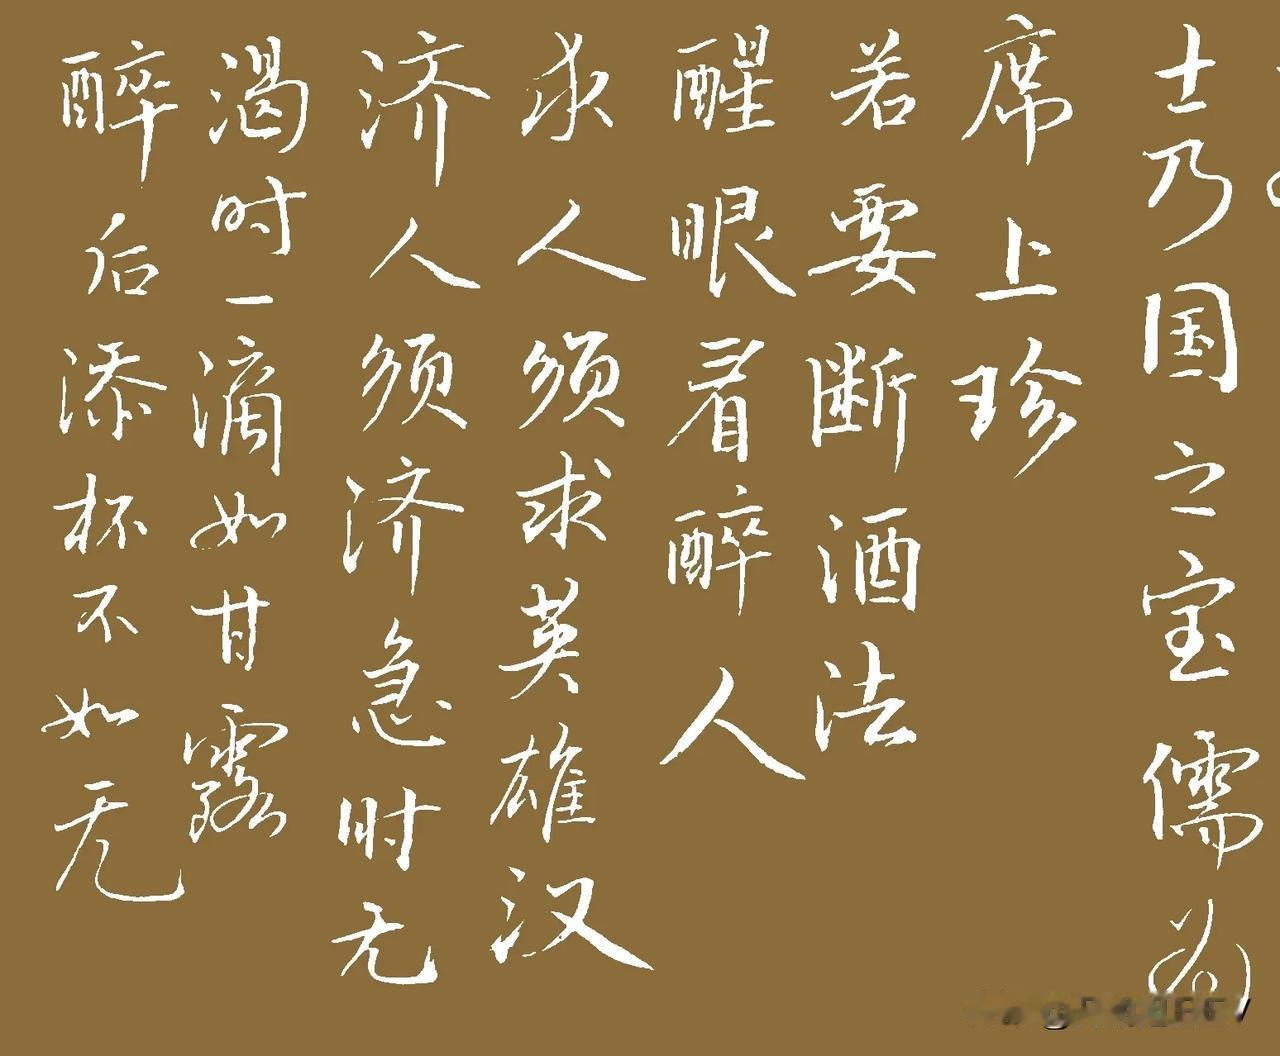 士乃国之宝儒为
席上珍
若要断酒法
醒眼看醉人
求人须求英雄汉
济人须济急时无
渴时一滴如甘露
醉后添杯不如无